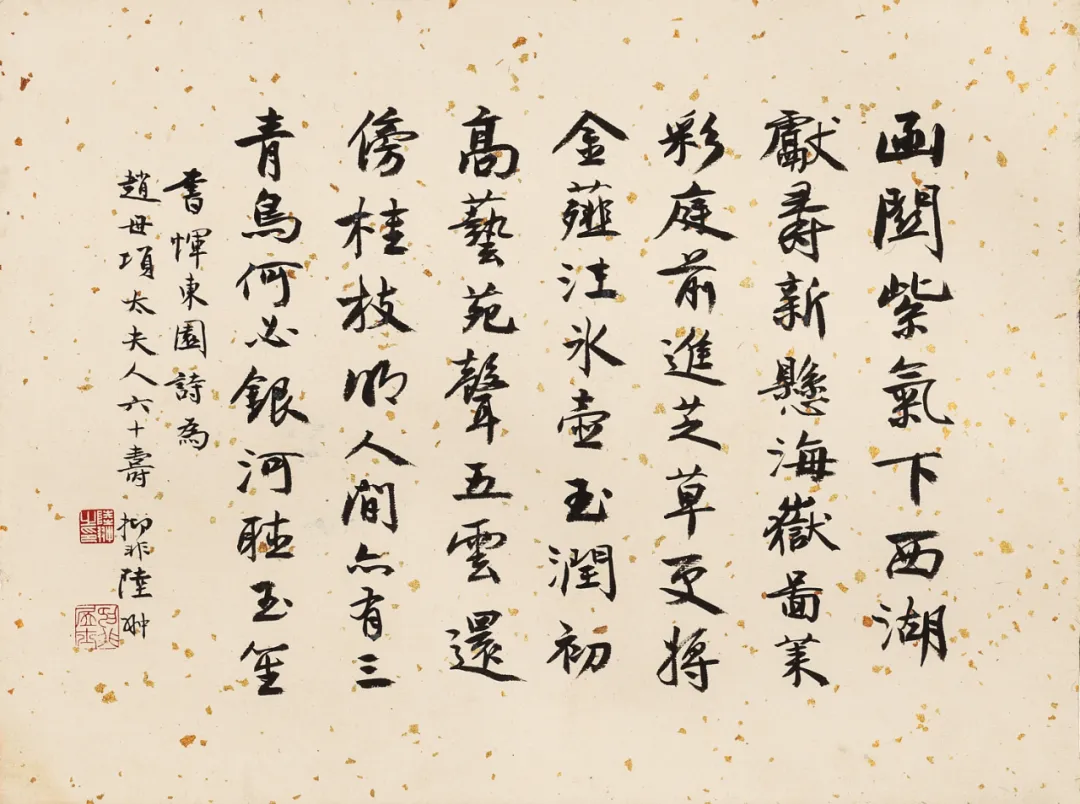 函關紫氣下西湖
獻壽新懸海嶽圖萊
彩庭前進芝草更將
金薤注冰壺玉潤初
高藝苑聲五雲還
傍桂枝明人間亦有三
青鳥何必銀河聽玉笙
書惲東園詩為
趙母項太夫人六十壽 抑非陸翀
陸翀之印